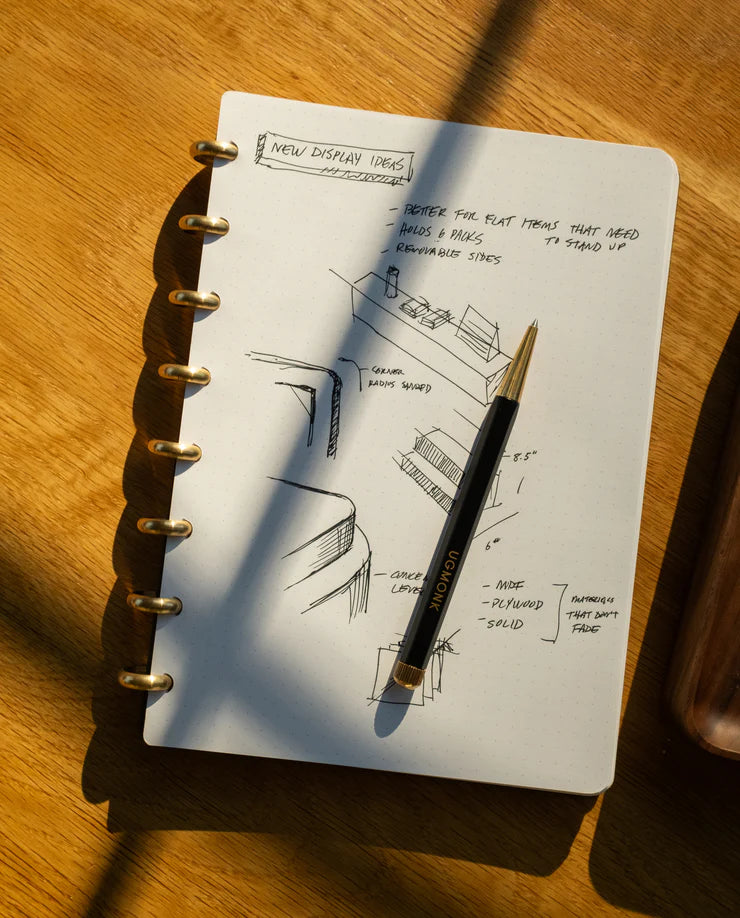 NEW DISPLAY IDEAS
- BETTER FOR FLAT ITEMS THAT NEED
TO STAND UP
- HOLDS 6 PACKS
- REMOVABLE SIDES
CORNER
RADIUS SANDED
8.5"
6"
LEVE
- MDF
- PLYWOOD
- SOLID
MATERIALS
THAT DON'T
FADE
UGMONK